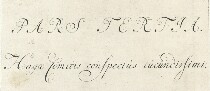 PARS TERTIA.
Hagæ Comitis conspectus jucundissimi.